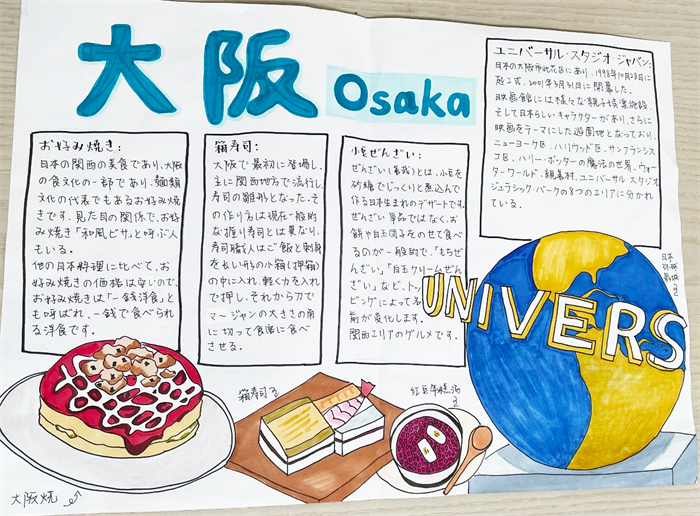 大阪 Osaka
お好み焼き:
日本の関西の美食であり、大阪
の食文化の一部であり、麺類
文化の代表でもあるお好み焼
きです。見た目の関係で、お好
み焼き「和風ピザ」と呼ぶ人
もいる。
他の日本料理に比べて、お
好み焼きの価格は高くないので、
お好み焼きは「一銭洋食」と
も呼ばれ、一銭で食べられ
る洋食です。
箱寿司:
大阪で最初に登場し、
主に関西地方で流行し、
寿司の雛形となった。そ
の作り方は現在一般的
な握り寿司とは異なり、
寿司職人はご飯と刺身
を長い形の小箱(押箱)
の中に入れ、軽く力を入れ
で押し、それから刀で
マージャンの大きさの角
に切って食席に食べ
させる。
小豆ぜんざい:
ぜんざい(善哉)とは、小豆を
砂糖でじっくりと煮込んで
作る日本生まれのデザートです。
ぜんざい単品ではなく、お
餅や白玉団子をのせて食べ
るのが一般的で、「もちぜ
んざい」「白玉クリームぜん
ざい」など、トッ
ピングによって名
前が変化します。
関西エリアのグルメです。
ユニバーサル・スタジオ・ジャパン:
日本の大阪市此花区にあり、1998年10月28日に
起工式、2001年3月31日に開幕した。
映画館には様々な親子娯楽施設、
そして日本らしいキャラクターがあり、さらに
映画をテーマにした遊園地となっており、
ニューヨーク区、ハリウッド区、サンフランシス
コ区、ハリー・ポッターの魔法の世界、ウォー
ターワールド、親善村、ユニバーサル・スタジオ
ジュラシック・パークの8つのエリアに分かれ
ている。
UNIVERS
日本
环球
影城
箱寿司
红豆年糕汤
大阪烧